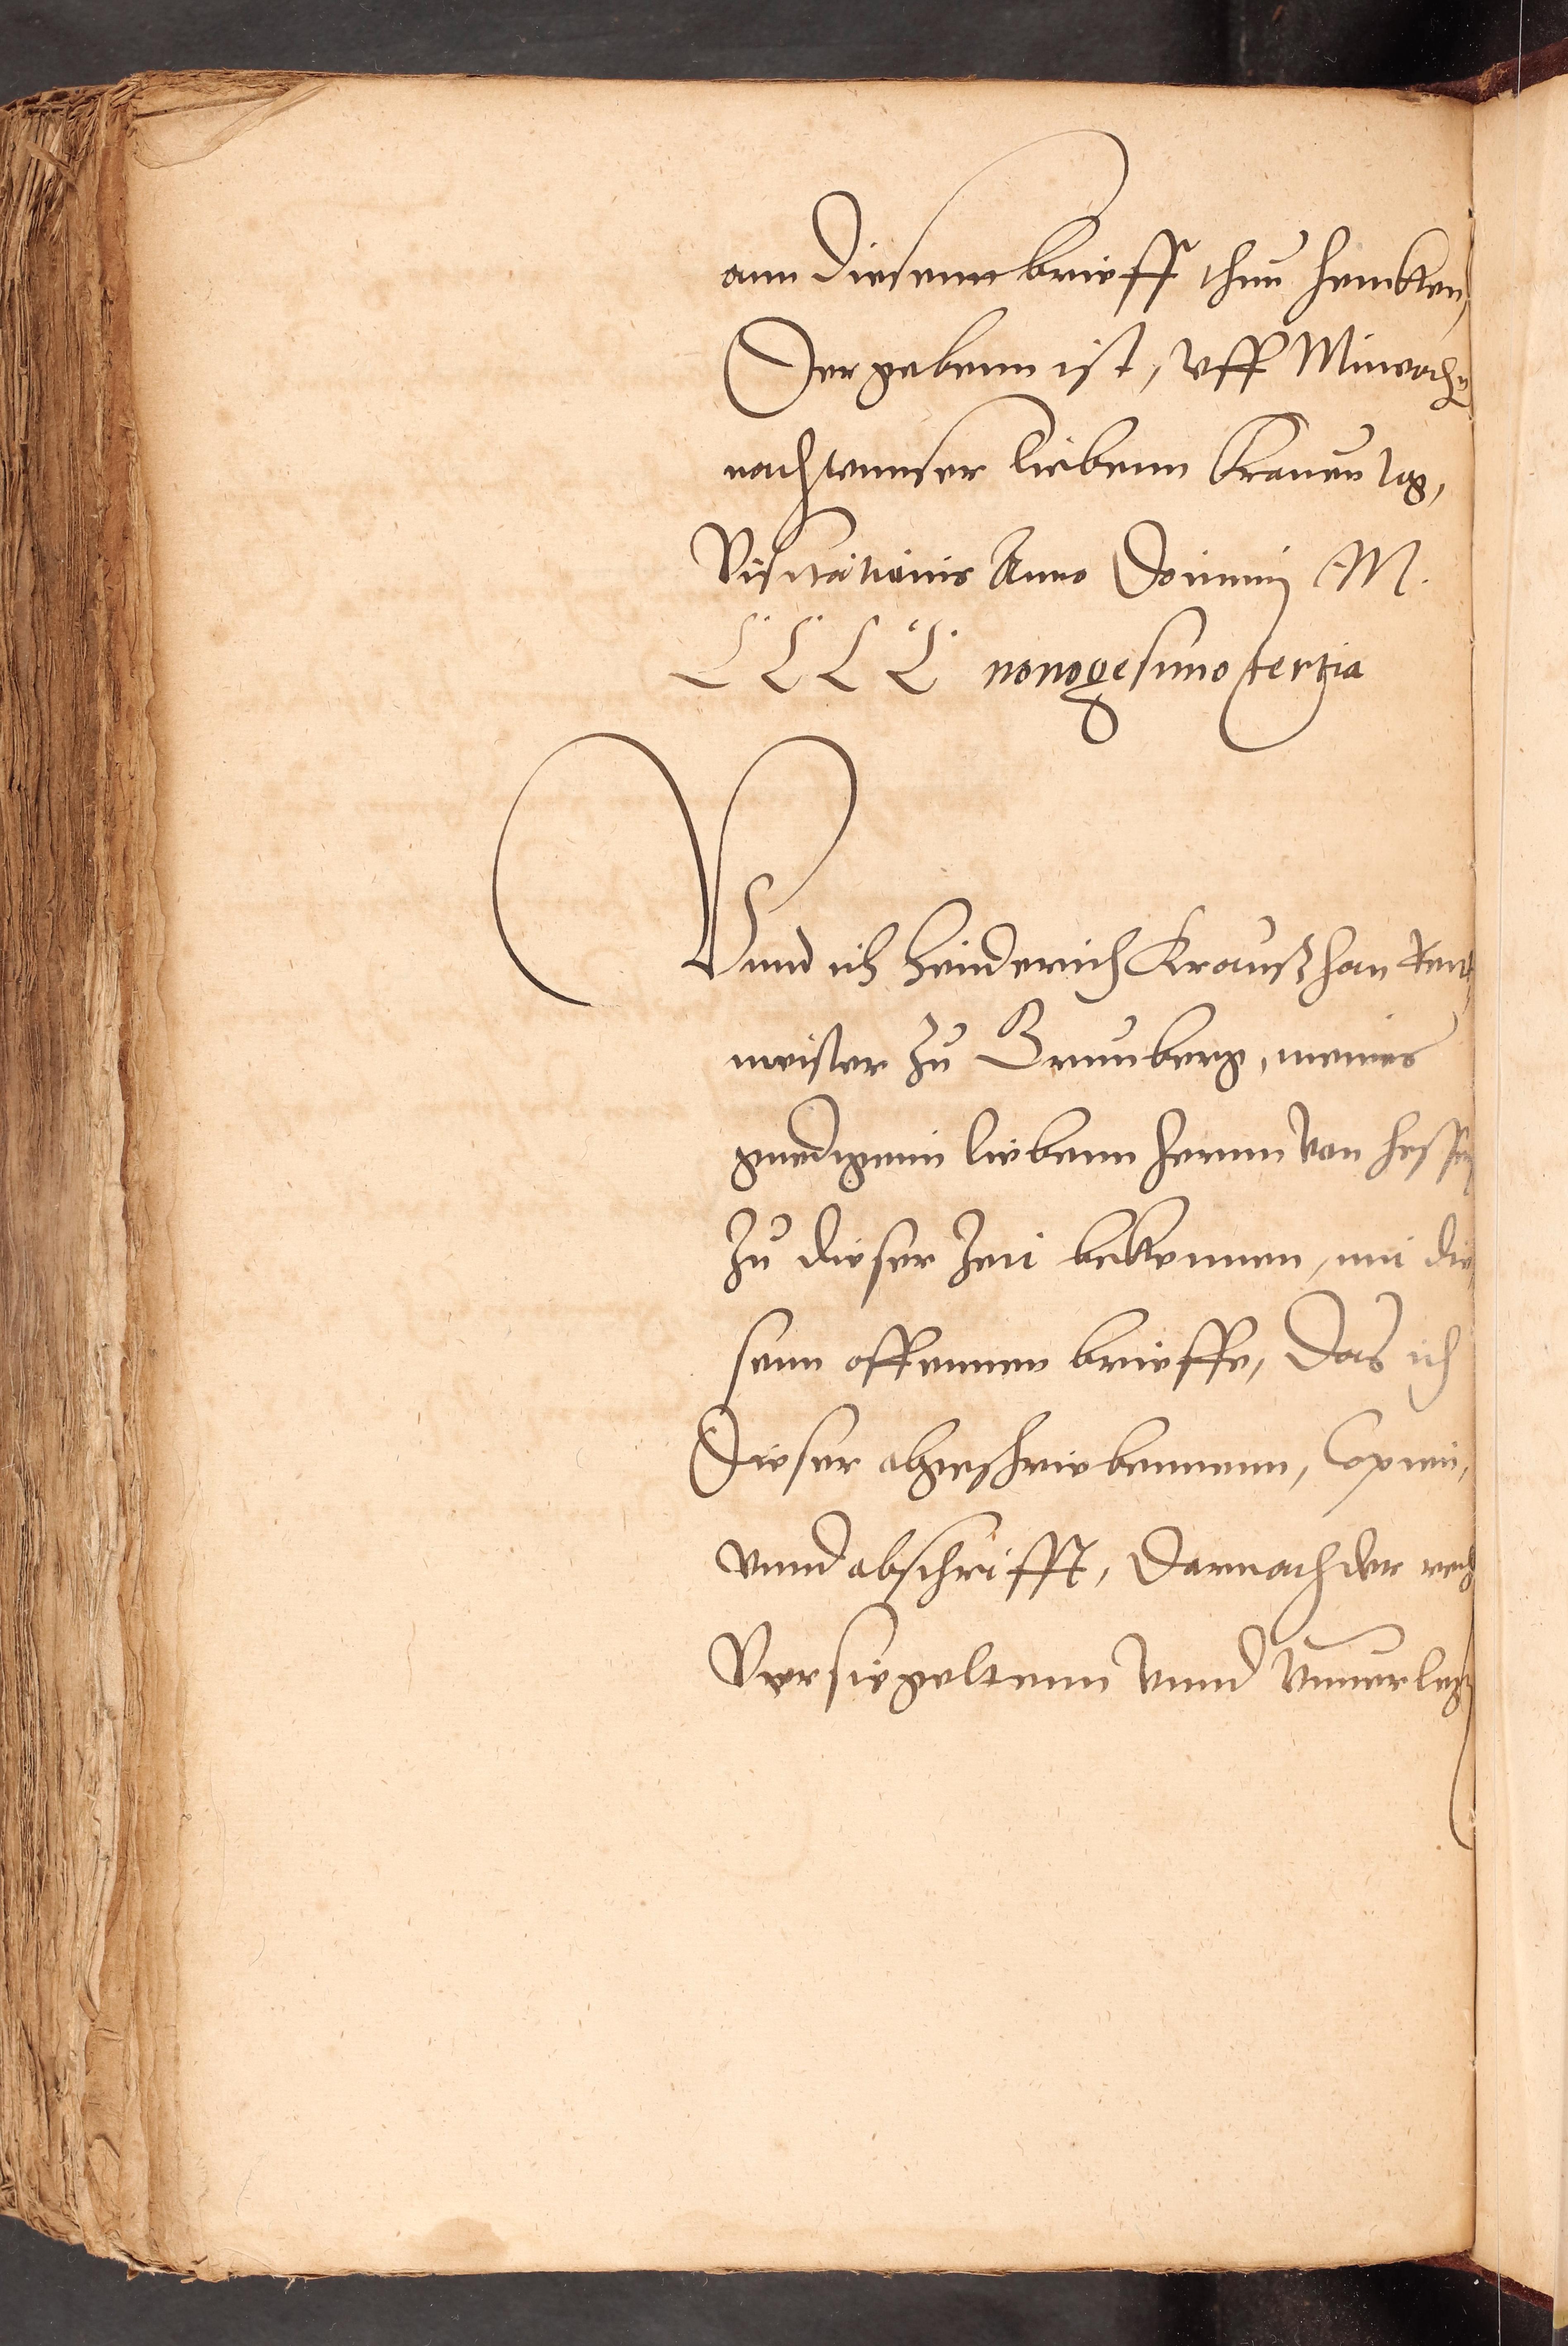 ann diesenn brieff thun hencken,
Der geben ist, vff Mitwochn
nach vnnser liebenn frauen tag,
Visitationis Anno Dominij M.
CCCC nonogesimo tertia
Vnnd ich Heinderich Kraußhan Rent
meister zu Grunberg, meines
gnedigenn liebenn herrnn von Hessen
zu dieser Zeit bekennen, mit die
senn offennen brieffe, Das ich
dieser abgeschriebennenn, Copien,
vnnd abschrifft, Darnach der rech
Versiegeltenn vnnd vnuerletz